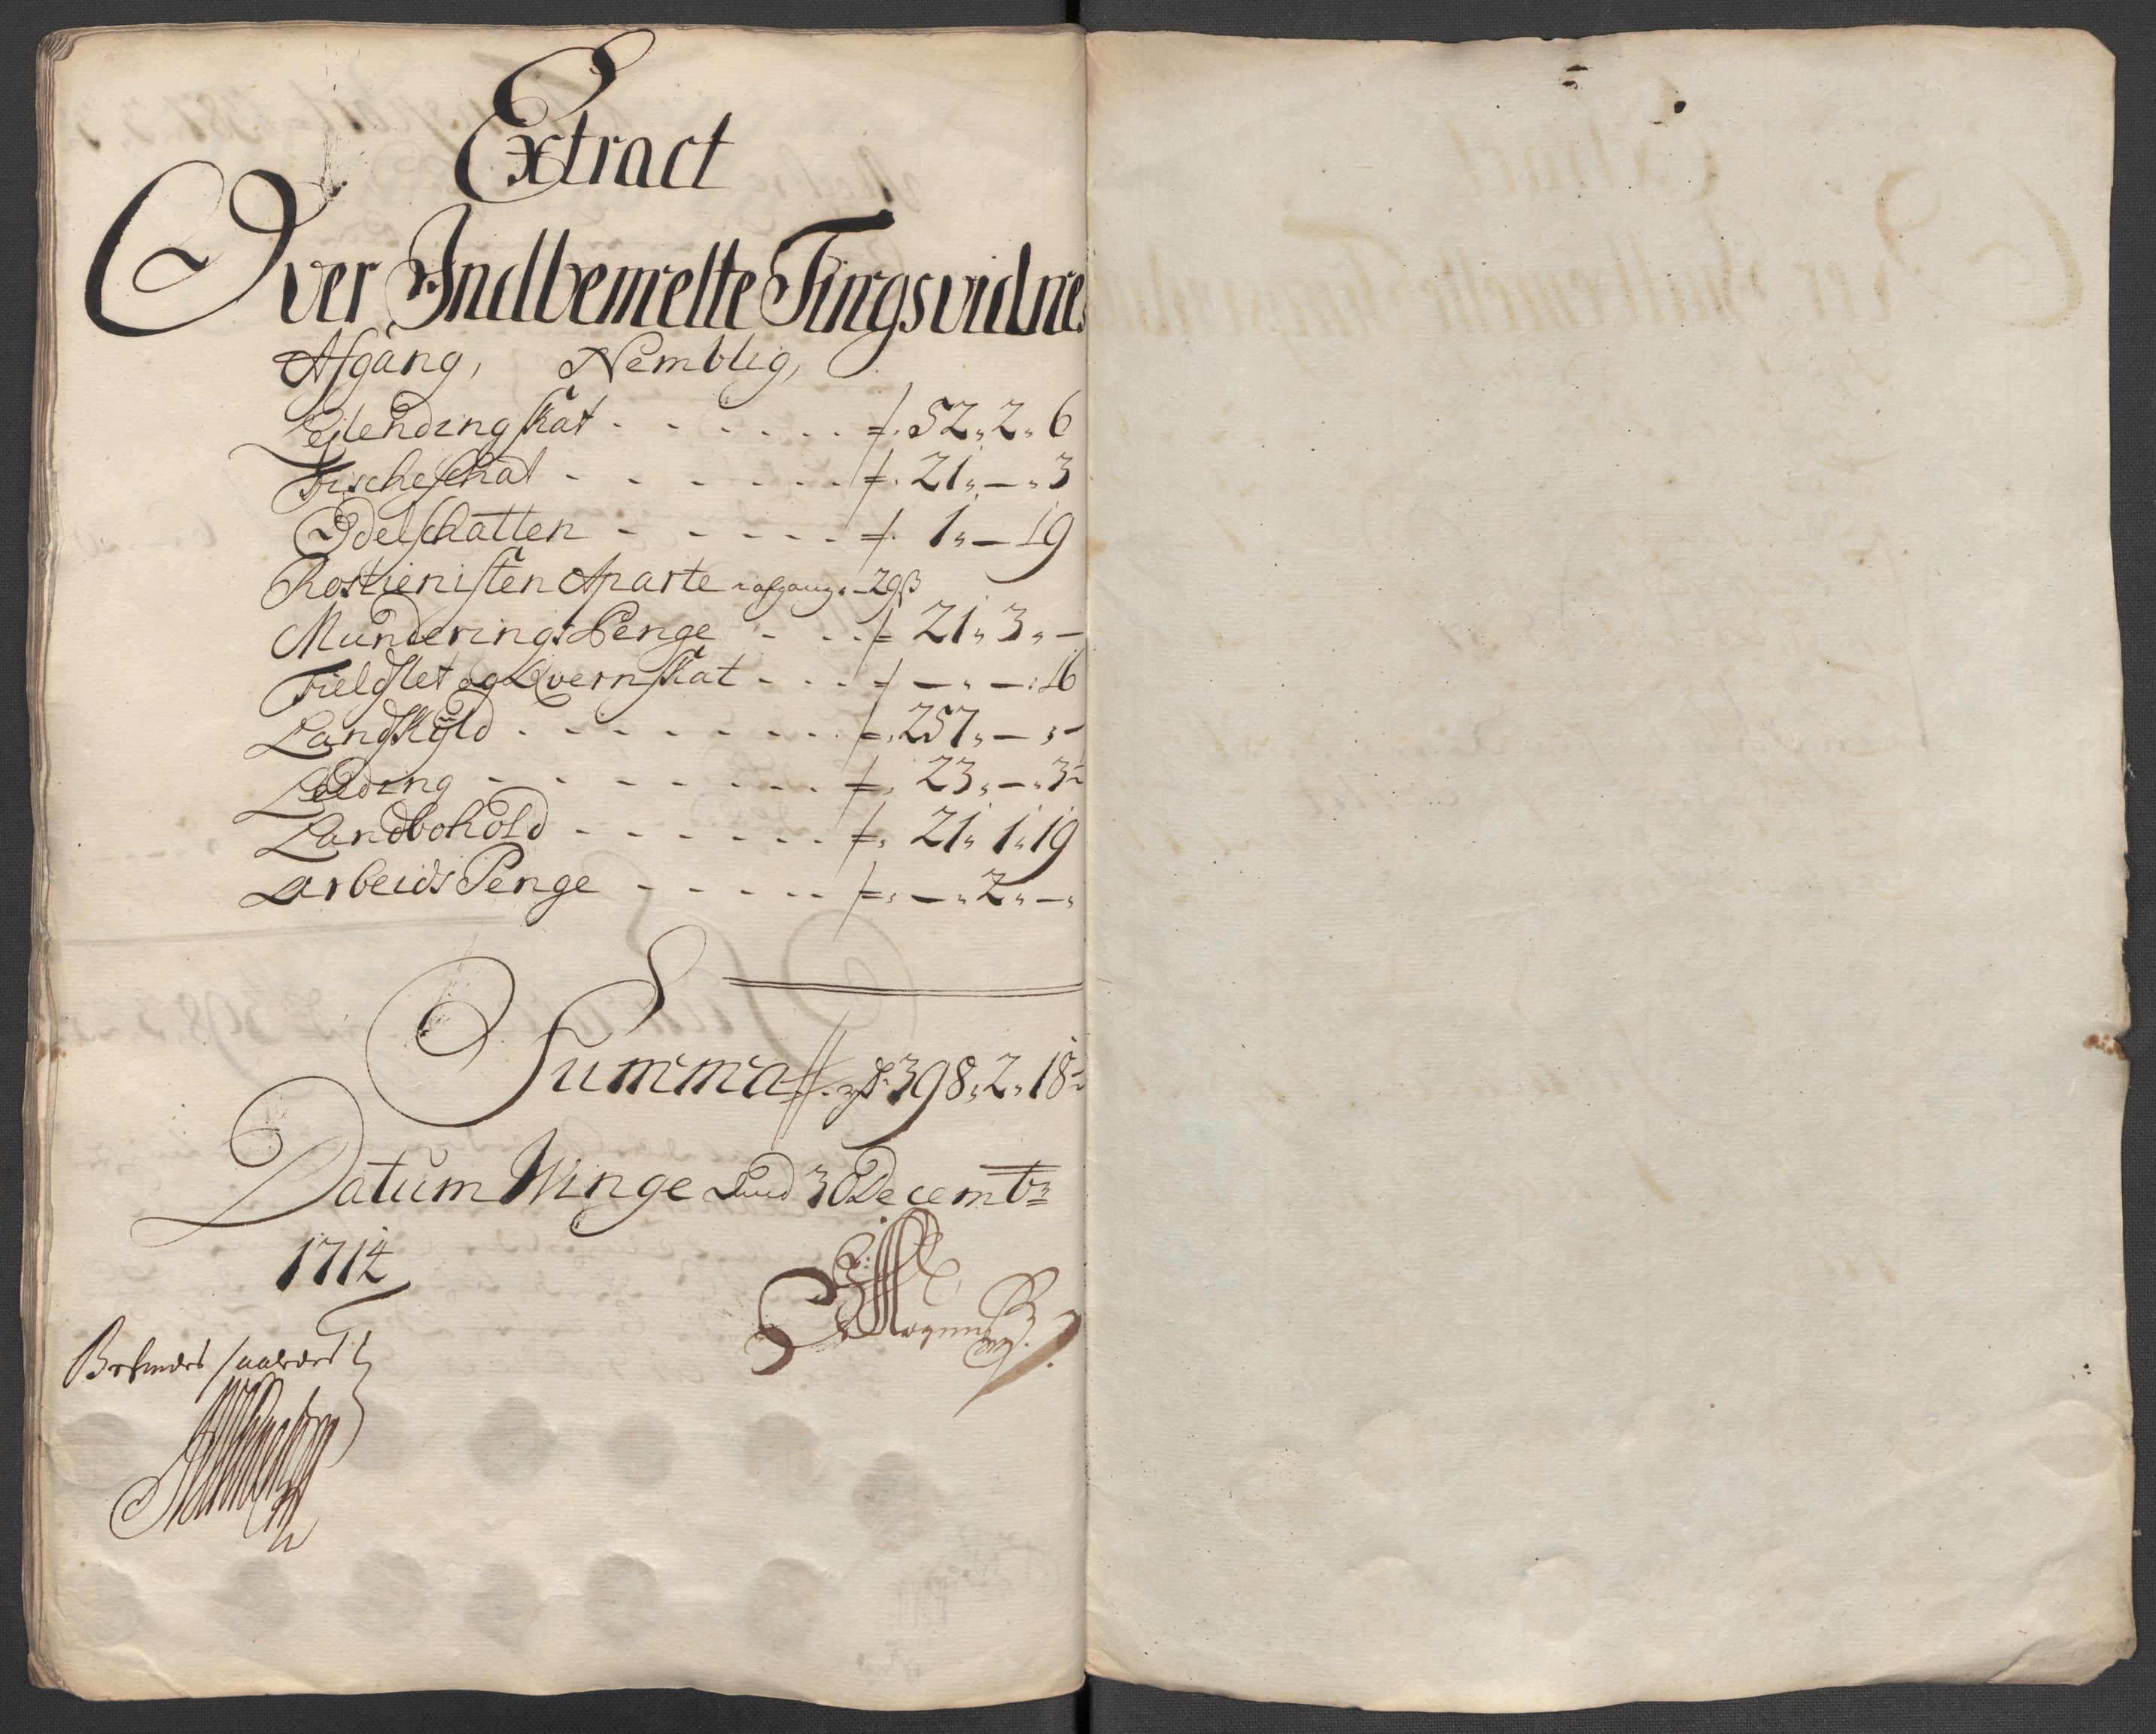 Extract
Over Indbemelte Tingsvidnes
Afgang, Nemblig,
Leilending skat - - - - - - 52„ 2„ 6
Fischeschat - - - - - - 21„ — „ 3
Odelschatten - - - - - 1„ — 19
Rostienisten Aparte afgang. 29ß
Munderings Penge - - - 21„ 3„ —
Fieldslet og Qvernskat - - - — „ — „ 16
Landskÿld - - - - - - - 257„ — „ —
Leeding - - - - - - - 23„ — „ 3½
Landbohold - - - - - - 21„ 1„ 19
Arbeids Penge - - - - - — „ 2„ —„
Summa 398„ 2„ 18½
Datum Winge 30 Decembr
1714
Befindes saaledes